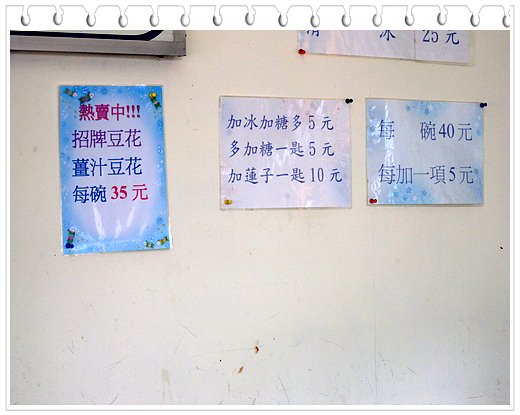 冰 25元
熱賣中!!!
招牌豆花
薑汁豆花
每碗 35 元
加冰加糖多 5 元
多加糖一匙 5 元
加蓮子一匙 10 元
每 碗 40 元
每加一項 5 元